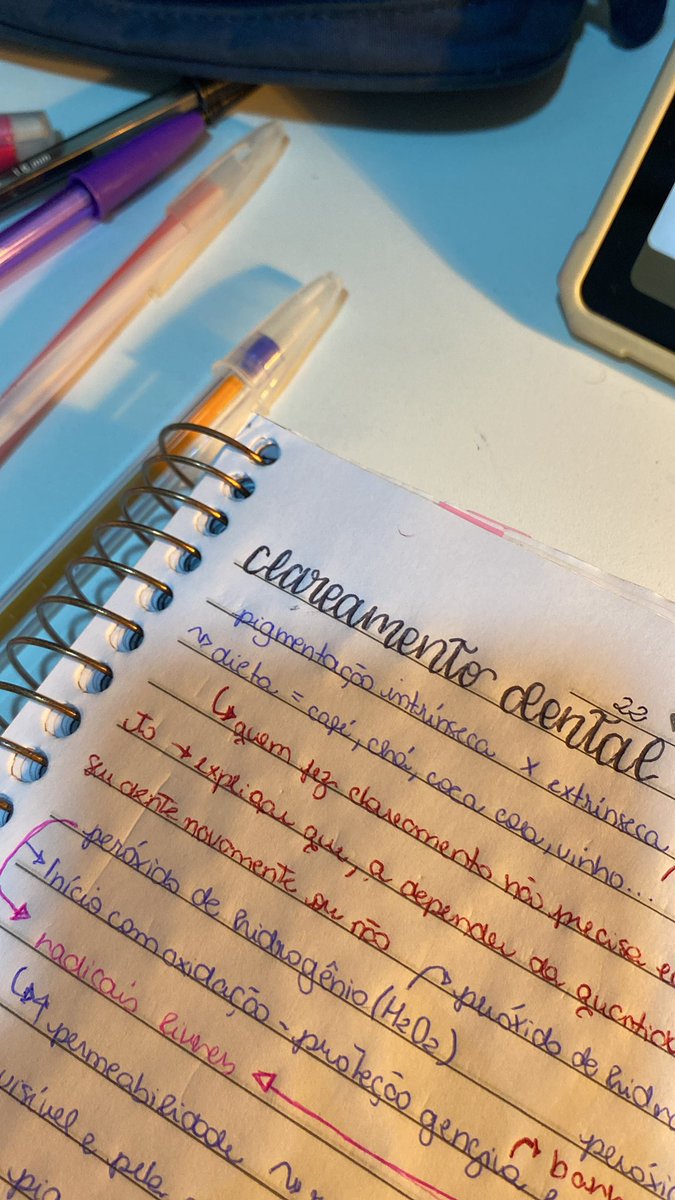 1.6 mm
clareamento dental
22
pigmentação intrínseca x extrínseca
dieta = café, chá, coca cola, vinho...
↳ quem fez clareamento não precisa
→ explicar que, a depender da quantid
dente novamente ou não
peróxido de hidrogênio (H2O2)
peróxido de hidro
→ Início com oxidação - proteção gengiva e
peróxi
radicais livres
↳ + permeabilidade
barr
visível e pela
pig